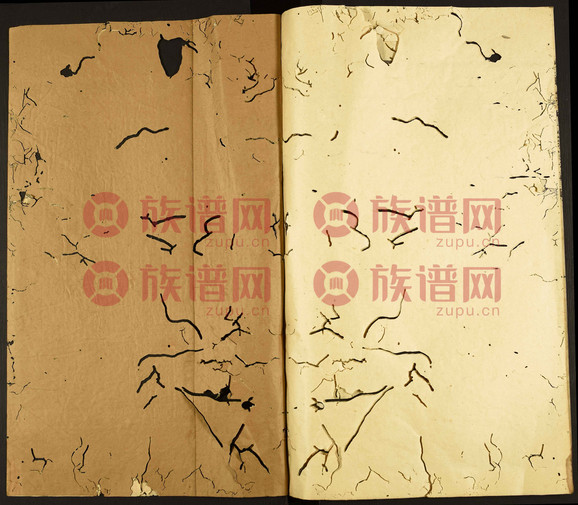 族谱网 族谱网
zupu.cn zupu.cn
族谱网 族谱网
zupu.cn zupu.cn